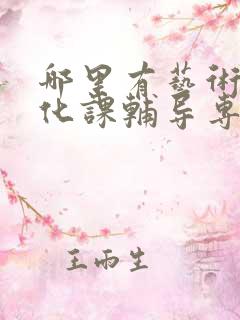 哪里有藝術
化課輔导專
王雨生